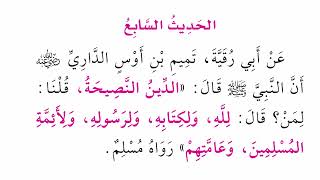 الحَدِيثُ السَّابِعُ
عَنْ أَبِي رُقَيَّةَ، تَمِيمِ بْنِ أَوْسٍ الدَّارِيِّ ﵁
أَنَّ النَّبِيَّ ﷺ قَالَ: «الدِّينُ النَّصِيحَةُ، قُلْنَا:
لِمَنْ؟ قَالَ: لِلَّهِ، وَلِكِتَابِهِ، وَلِرَسُولِهِ، وَلِأَئِمَّةِ
المُسْلِمِينَ، وَعَامَّتِهِمْ» رَوَاهُ مُسْلِمٌ.